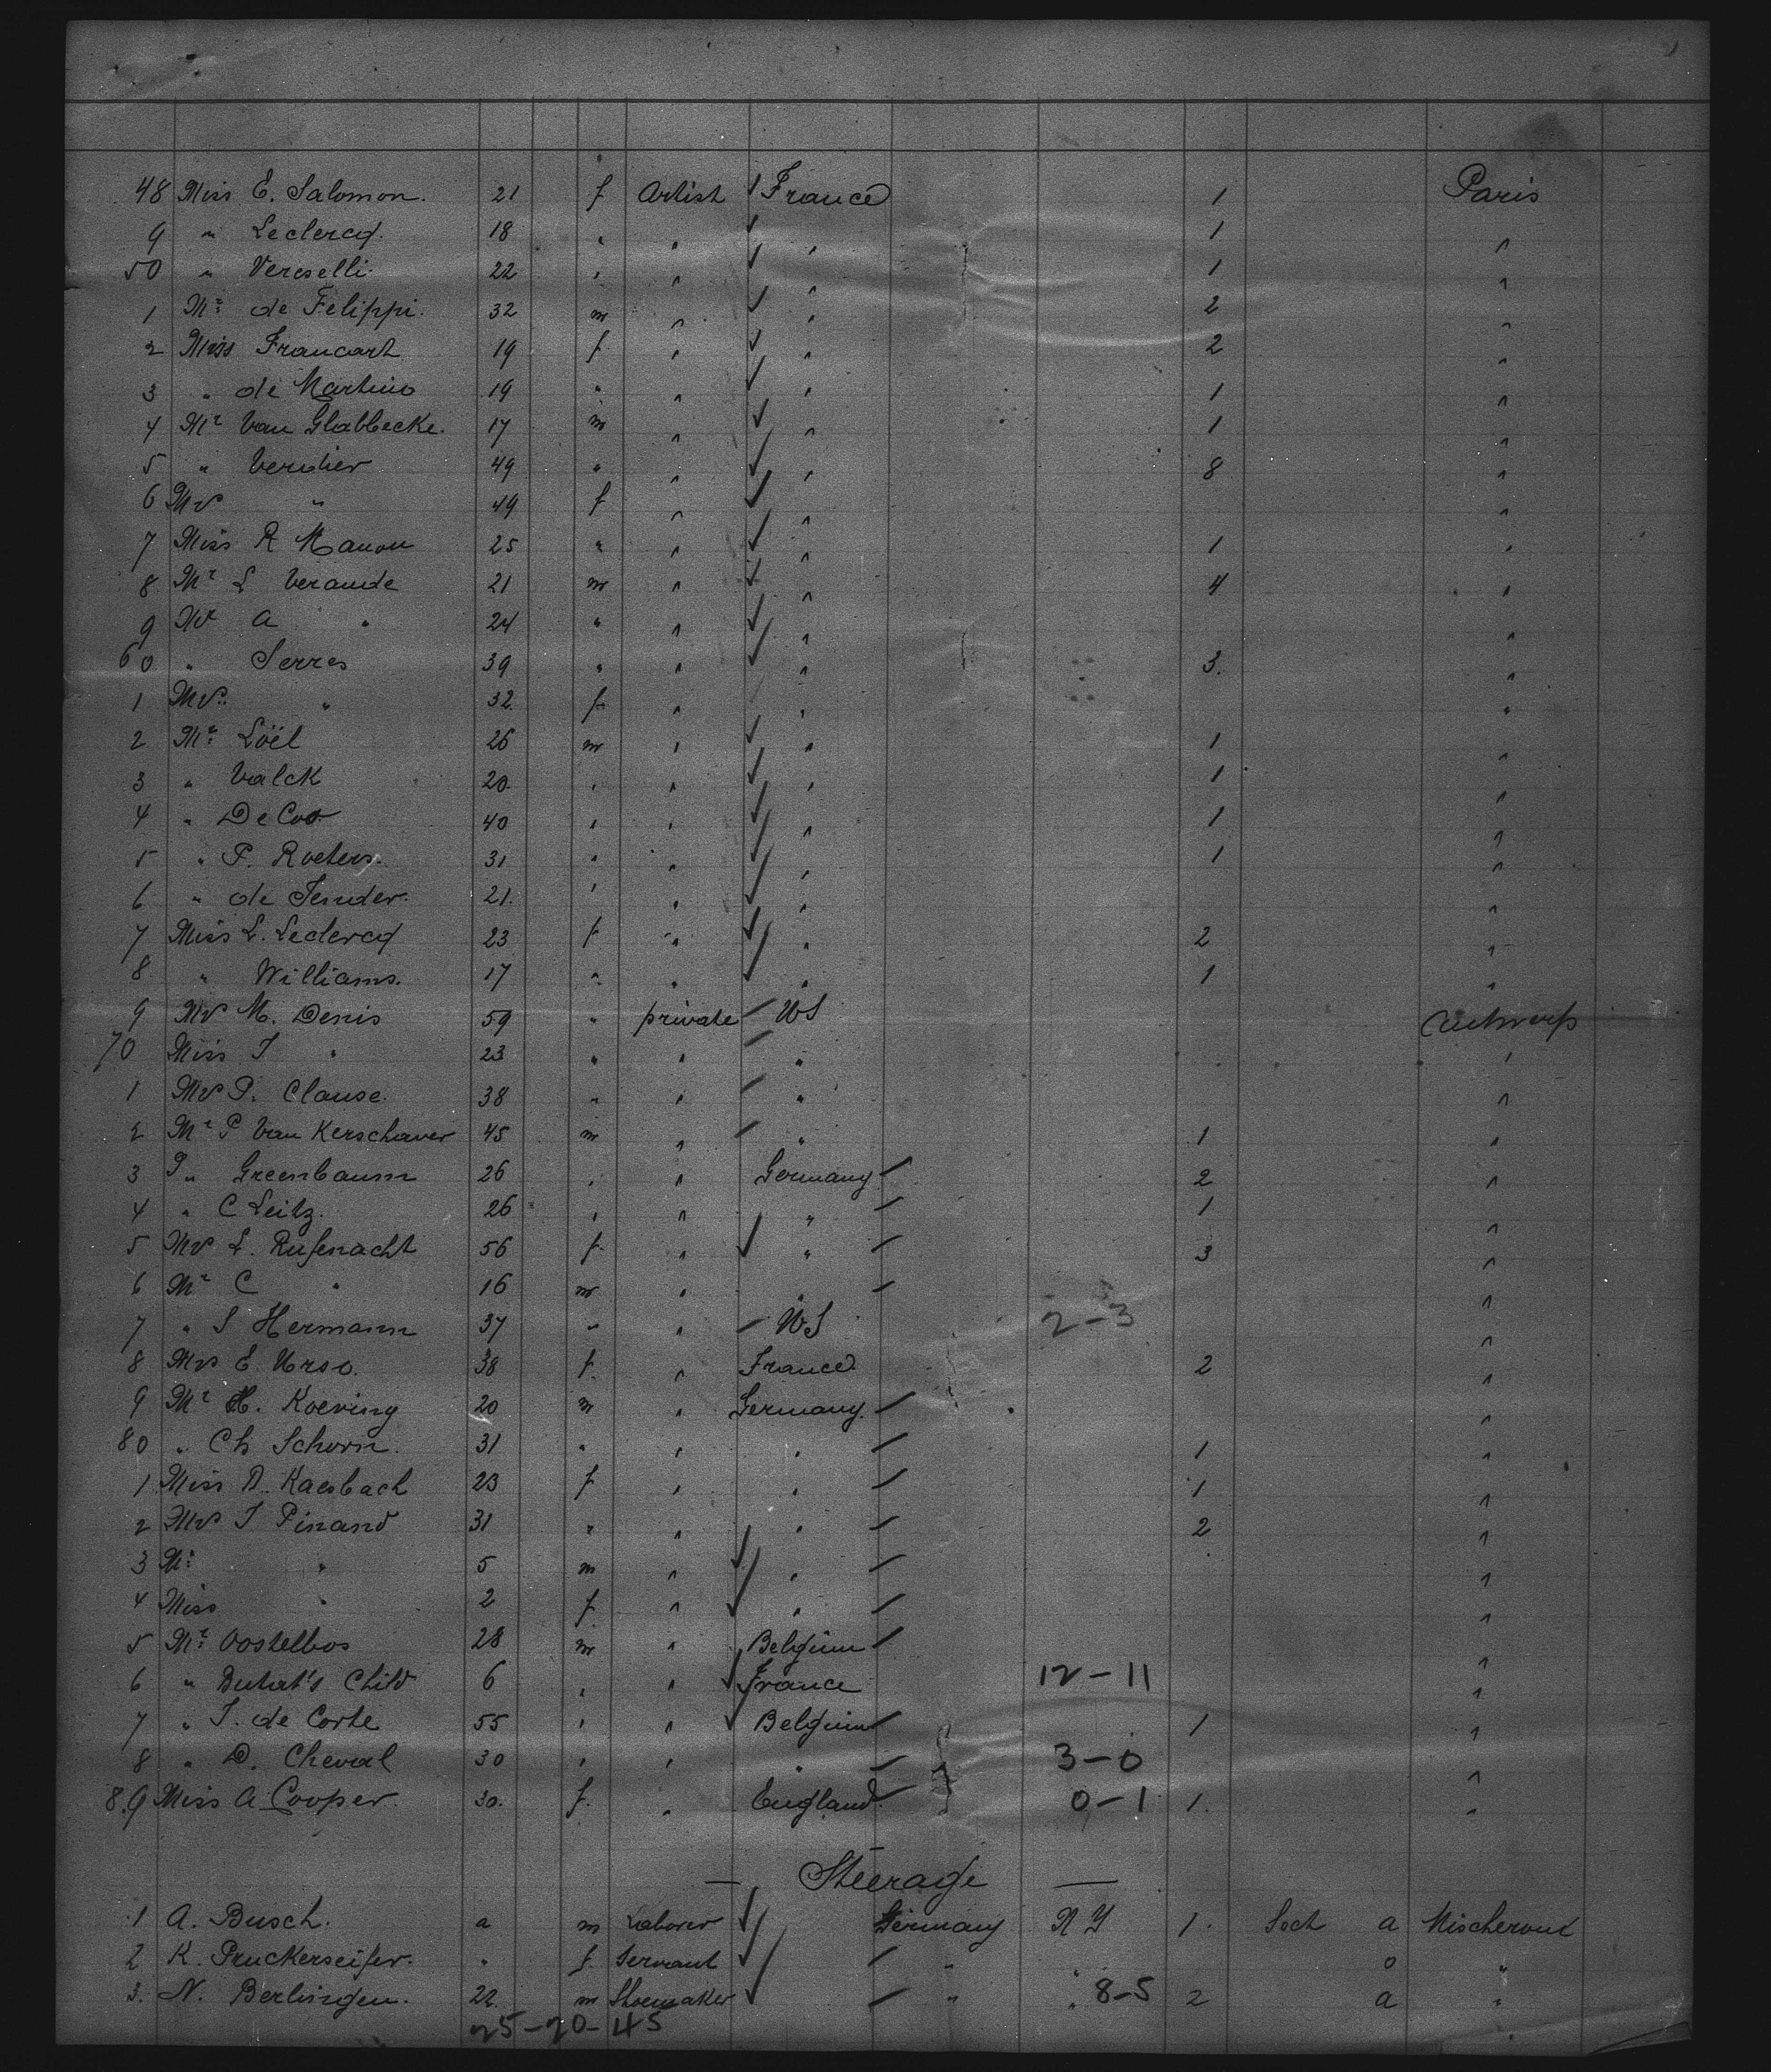 48 Miss E. Salomon. 21 f Artist France 1 Paris
9 " Leclercq. 18 " " " 1 "
50 " Vercselli. 22 " " " 1 "
1 Mr de Felippi. 32 m " " 2 "
2 Miss Francart 19 f " " 2 "
3 " de Martino 19 " " " 1 "
4 Mr Van Glabbecke. 17 m " " 1 "
5 " Verdier 49 " " " 8 "
6 Mrs " 49 f " " "
7 Miss R Manon 25 " " " 1 "
8 Mr L Verande 21 m " " 4 "
9 Mr A " 24 " " " "
60 " Serres 39 " " " 3. "
1 Mrs " 32 f " " "
2 Mr Löel 26 m " " 1 "
3 " Valck 20 " " " 1 "
4 " De Coo 40 " " " 1 "
5 " P. Roeters. 31 " " " 1 "
6 " de Tender. 21. " " " "
7 Miss L. Leclercq 23 f " " 2 "
8 " Williams. 17 " " " 1 "
9 Mrs M. Denis 59 " private US Antwerp
70 Miss J " 23 " " " "
1 Mrs P. Clause 38 " " " "
2 Mr P Van Kerschaver 45 m " " 1 "
3 J " Greenbaum 26 " " Germany 2 "
4 " C Leitz. 26 " " " 1 "
5 Mrs L. Rufenacht 56 f " " 3 "
6 Mr C " 16 m " " "
7 " S Hermann 37 " " US 2-3 "
8 Mrs E. Urso. 38 f " France 2 "
9 Mr H. Koering 20 m " Germany. "
80 " Ch Schorn. 31 " " " 1 "
1 Miss D. Kaesbach 23 f " " 1 "
2 Mrs J Pinand 31 " " " 2 "
3 Mr " 5 m " " "
4 Miss " 2 f " " "
5 Mr Oostelbos 28 m " Belgium "
6 " Duhat's Child 6 " " France 12-11 "
7 " J. de Corte 55 " " Belgium 1 "
8 " D. Cheval 30 " " " 3-0 "
8.9 Miss A Cooper. 30. f. " England 0-1 1. "
— Steerage —
1 A. Busch. a m Laborer Germany N Y 1. Sect a Mischeroux
2 K. Pruckerseifer. " f Servant " " o "
3. N. Berlingen. 22. m Shoemaker " " 8-5 2 a "
25-20-45